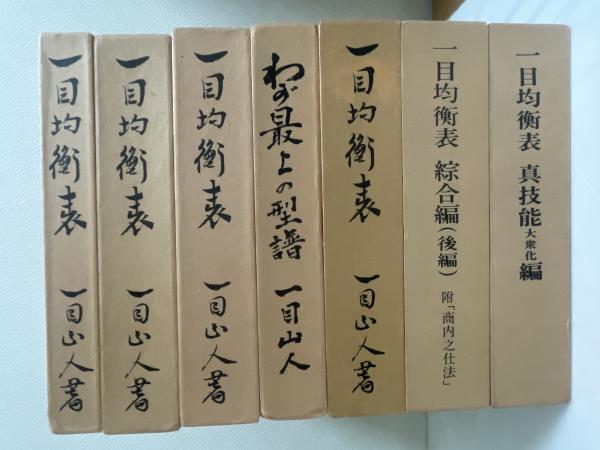 一目均衡表 一目山人著
一目均衡表 一目山人著
一目均衡表 一目山人著
わが最上の型譜 一目山人
一目均衡表 一目山人著
一目均衡表 綜合編(後編) 附「商内之仕法」
一目均衡表 真技能大衆化編